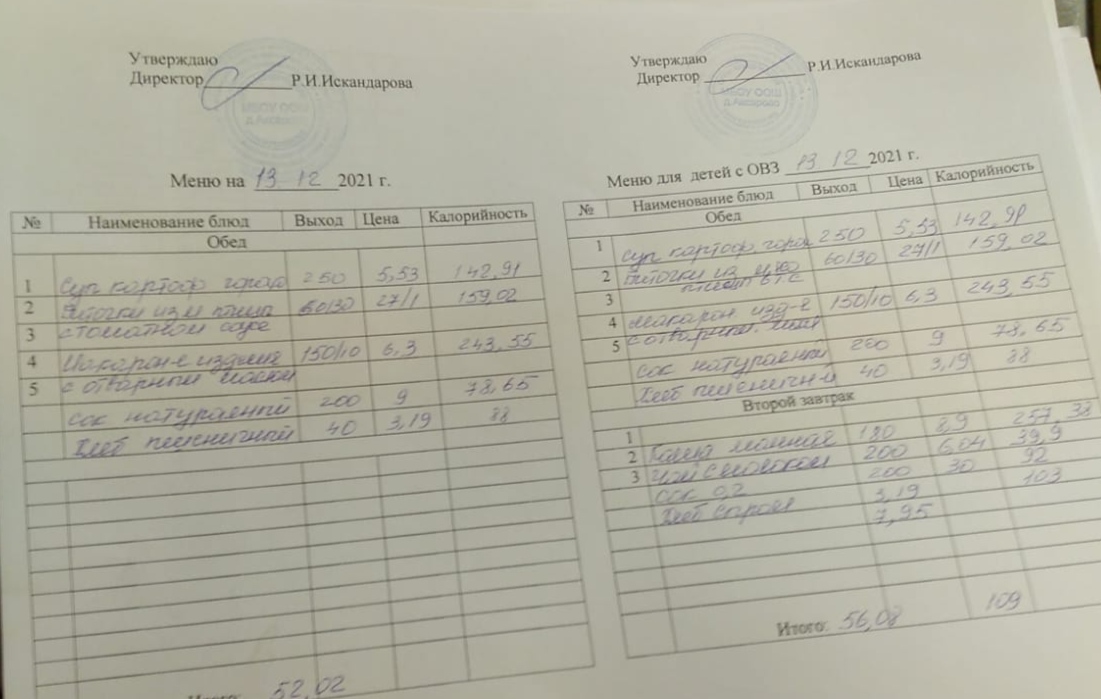 Утверждаю
Директор Р.И.Искандарова
МБОУ ООШ
Меню на 13 12 2021 г.
№ Наименование блюд Выход Цена Калорийность
Обед
1 Суп картоф. горох 250 5,53 142,91
2 Биточки из м птицы 60/30 27/1 159,02
3 с томатном соусе
4 Макарон-е изделие 150/10 6,3 243,55
5 с отварным маслом
Сок натуральный 200 9 78,65
Хлеб пшеничный 40 3,19 88
52,02
Утверждаю
Директор Р.И.Искандарова
МБОУ ООШ
Меню для детей с ОВЗ 13 12 2021 г.
№ Наименование блюд Выход Цена Калорийность
Обед
1 Суп картоф. горох 250 5,53 142,91
2 Биточки из мяса 60/30 27/1 159,02
3 птицы
4 Макарон изд-е 150/10 6,3 243,55
5 с отварн.
Сок натуральный 200 9 78,65
Хлеб пшеничный 40 3,19 88
Второй завтрак
1 Каша манная 180 8,9 257,38
2 Чай с молоком 200 6,04 39,9
3 Сок 0,2 200 30 92
Хлеб 3,19 103
7,95
Итого: 56,08 109